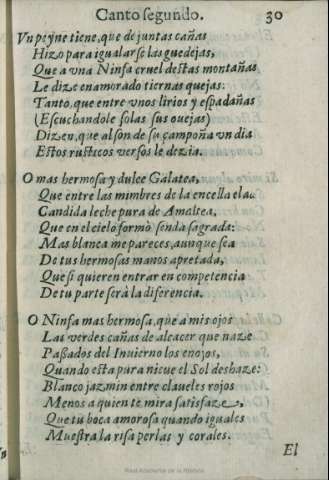 Canto segundo. 30
Vn peyne tiene, que de juntas cañas
Hizo para igualarse las guedejas,
Que a vna Ninfa cruel destas montañas
Le dize enamorado tiernas quejas:
Tanto, que entre vnos lirios y espadañas
(Escuchandole solas sus ouejas)
Dizen, que al son de su çampoña vn dia
Estos rusticos versos le dezia.
O mas hermosa y dulce Galatea,
Que entre las mimbres de la encella elada
Candida leche pura de Amaltea,
Que en el cielo formò senda sagrada:
Mas blanca me pareces, aunque sea
De tus hermosas manos apretada,
Que si quieren entrar en competencia
De tu parte serà la diferencia.
O Ninfa mas hermosa, que a mis ojos
Las verdes cañas de alcacer que naze
Passados del Inuierno los enojos,
Quando esta pura nieue el Sol deshaze:
Blanco jazmin entre claueles rojos
Menos a quien te mira satisfaze,
Que tu boca amorosa quando iguales
Muestra la risa perlas y corales.
El
Real Academia de la Historia